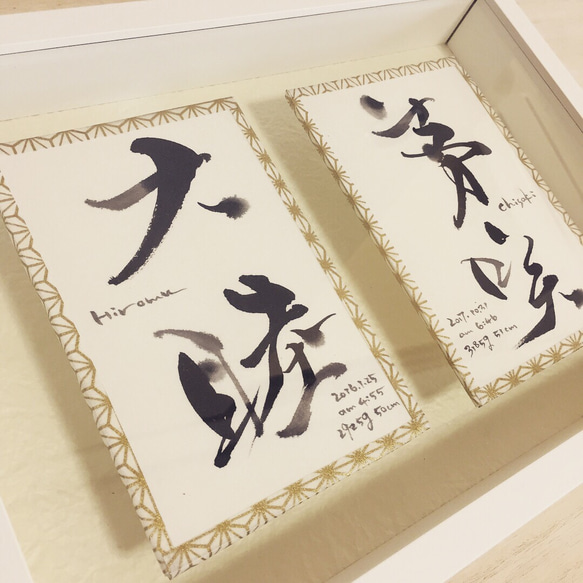 大
睦
Hiromu
2016.1.25
am 4:55
2925g 50cm
咲
chisaki
2017.10.31
am 6:46
3185g 51cm